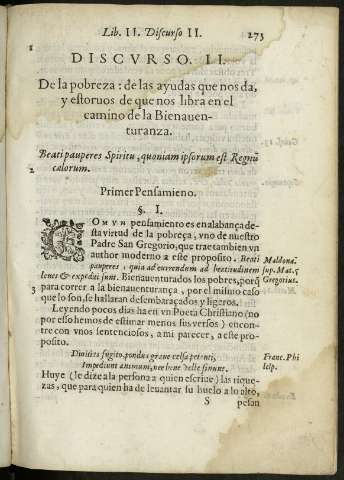 Lib. II. Discurso II. 273
1
DISCVRSO. II.
De la pobreza: de las ayudas que nos da,
y estoruos de que nos libra en el
camino de la Bienauen-
turanza.
Beati pauperes Spiritu, quoniam ipsorum est Regnũ
2 cælorum.
Primer Pensamieno.
§. I.
COMVN pensamiento es en alabança de-
sta virtud de la pobreça, vno de nuestro
Padre San Gregorio, que trae tambien vn
author moderno a este proposito. Beati
pauperes, quia ad currendum ad beatitudinem
leues & expediti sunt. Bienauenturados los pobres, porq̃
3 para correr a la bienauenturança, por el mismo caso
que lo son, se hallaran desembaraçados y ligeros.
Maldona.
sup. Mat. 5
Gregorius.
Leyendo pocos dias ha en vn Poeta Christiano (no
por esso hemos de estimar menos sus versos) encon-
tre con vnos sentenciosos, a mi parecer, a este pro-
posito.
Diuitias fugito, pondus graue celsa petenti,
Impediunt animum, nec bene velle sinunt.
Franc. Phi
lelp.
Huye (le dize a la persona a quien escriue) las rique-
zas, que para quien ha de leuantar su huelo a lo alto,
S pesan